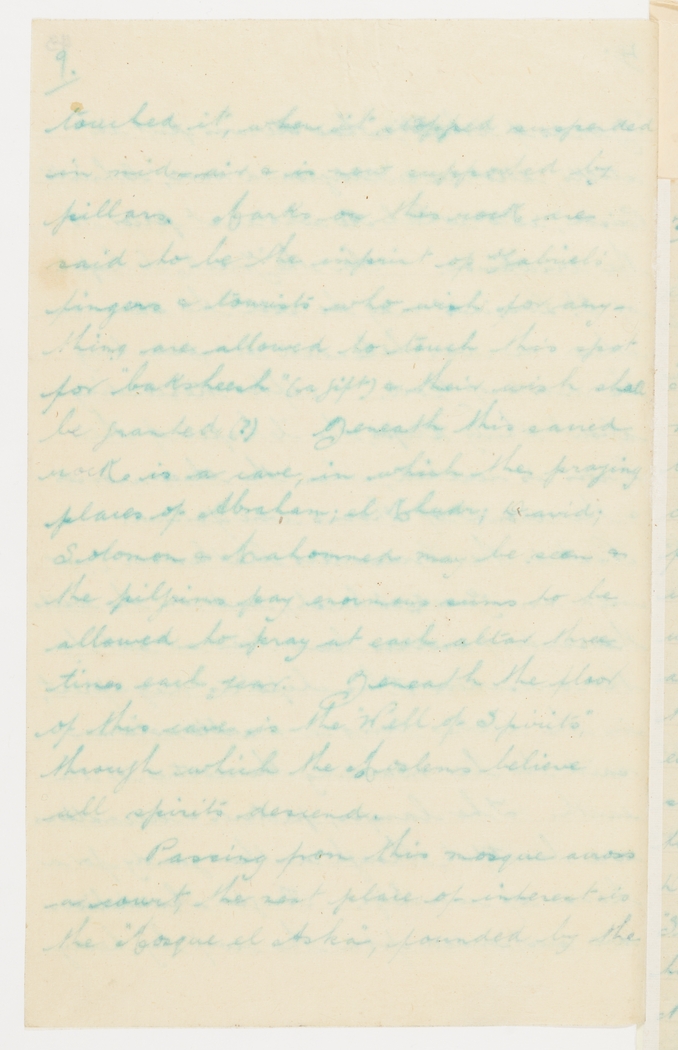 9.
touched it, when it stopped suspended
in mid-air & is now supported by
pillars. Marks on this rock are
said to be the imprint of Gabriel's
fingers & tourists who wish for any-
thing are allowed to touch this spot
for "baksheesh" (a gift) & their wish shall
be granted (?) Beneath this sacred
rock is a cave, in which the praying
places of Abraham; el Khudr; David;
Solomon & Mahommed may be seen &
the pilgrims pay enormous sums to be
allowed to pray at each altar three
times each year. Beneath the floor
of this cave is the "Well of Spirits"
through which the Moslems believe
all spirits descend.
Passing from this mosque across
a court, the next place of interest is
the "Mosque el Aska", founded by the